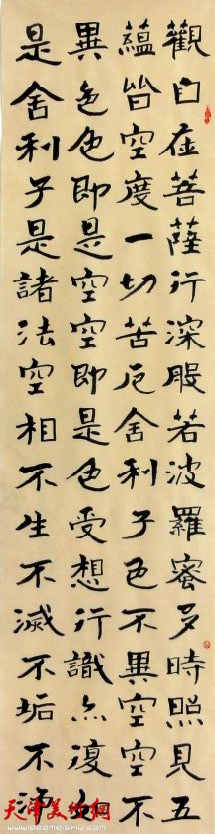 觀自在菩薩行深般若波羅蜜多時照見五
蘊皆空度一切苦厄舍利子色不異空空不
異色色即是空空即是色受想行識亦復如
是舍利子是諸法空相不生不滅不垢不淨
天津美术网